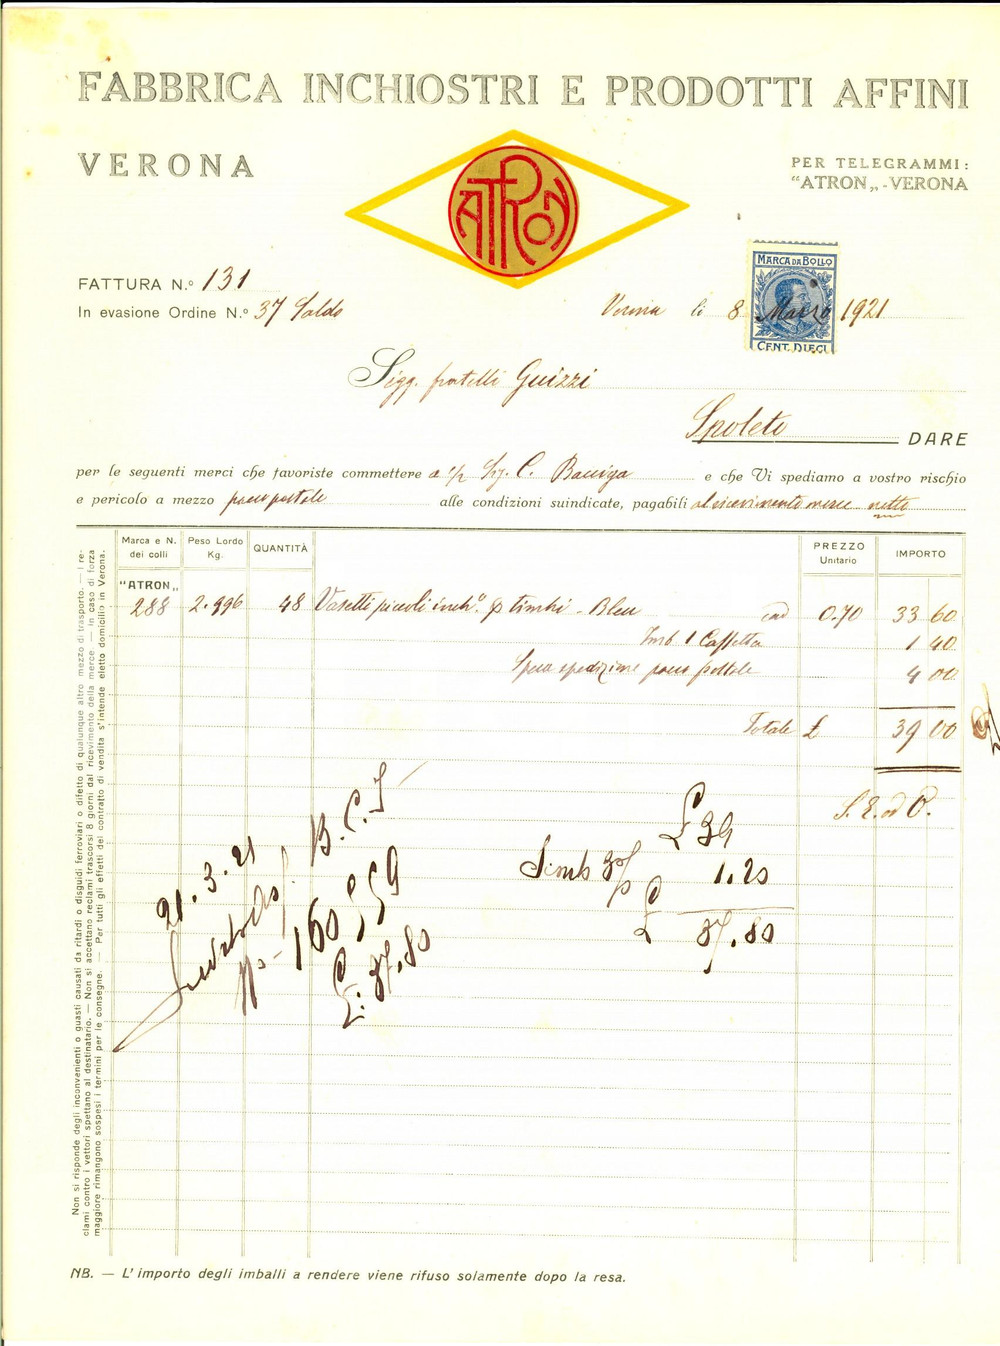 FABBRICA INCHIOSTRI E PRODOTTI AFFINI
VERONA
ATRON
PER TELEGRAMMI:
"ATRON„ - VERONA
FATTURA N.º 131
In evasione Ordine N.º 37 Saldo
Verona li 8 Marzo 1921
MARCA DA BOLLO
CENT. DIECI
Sigg. fratelli Guizzi
Spoleto DARE
per le seguenti merci che favoriste commettere a Sig. C. e che Vi spediamo a vostro rischio
e pericolo a mezzo pacco postale alle condizioni suindicate, pagabili al ricevimento merce netto
Marca e N. dei colli Peso Lordo Kg. QUANTITÀ PREZZO Unitario IMPORTO
"ATRON„
288 2.996 48 Vasetti piccoli inch.º p timbri - Bleu cad 0.70 33 60
Imb. 1 Cassetta 1 40
Spesa spedizione pacco postale 4 00
Totale £ 39 00
S. E. od O.
£ 39
3% 1.20
£ 37.80
21.3.21 B.C.I
160559
£. 37.80
Non si risponde degli inconvenienti o guasti causati da ritardi o disguidi ferroviari o difetto di qualunque altro mezzo di trasporto. — I re-
clami contro i vettori spettano al destinatario. — Non si accettano reclami trascorsi 8 giorni dal ricevimento della merce. — In caso di forza
maggiore rimangono sospesi i termini per le consegne. — Per tutti gli effetti del contratto di vendita s'intende eletto domicilio in Verona.
NB. — L'importo degli imballi a rendere viene rifuso solamente dopo la resa.